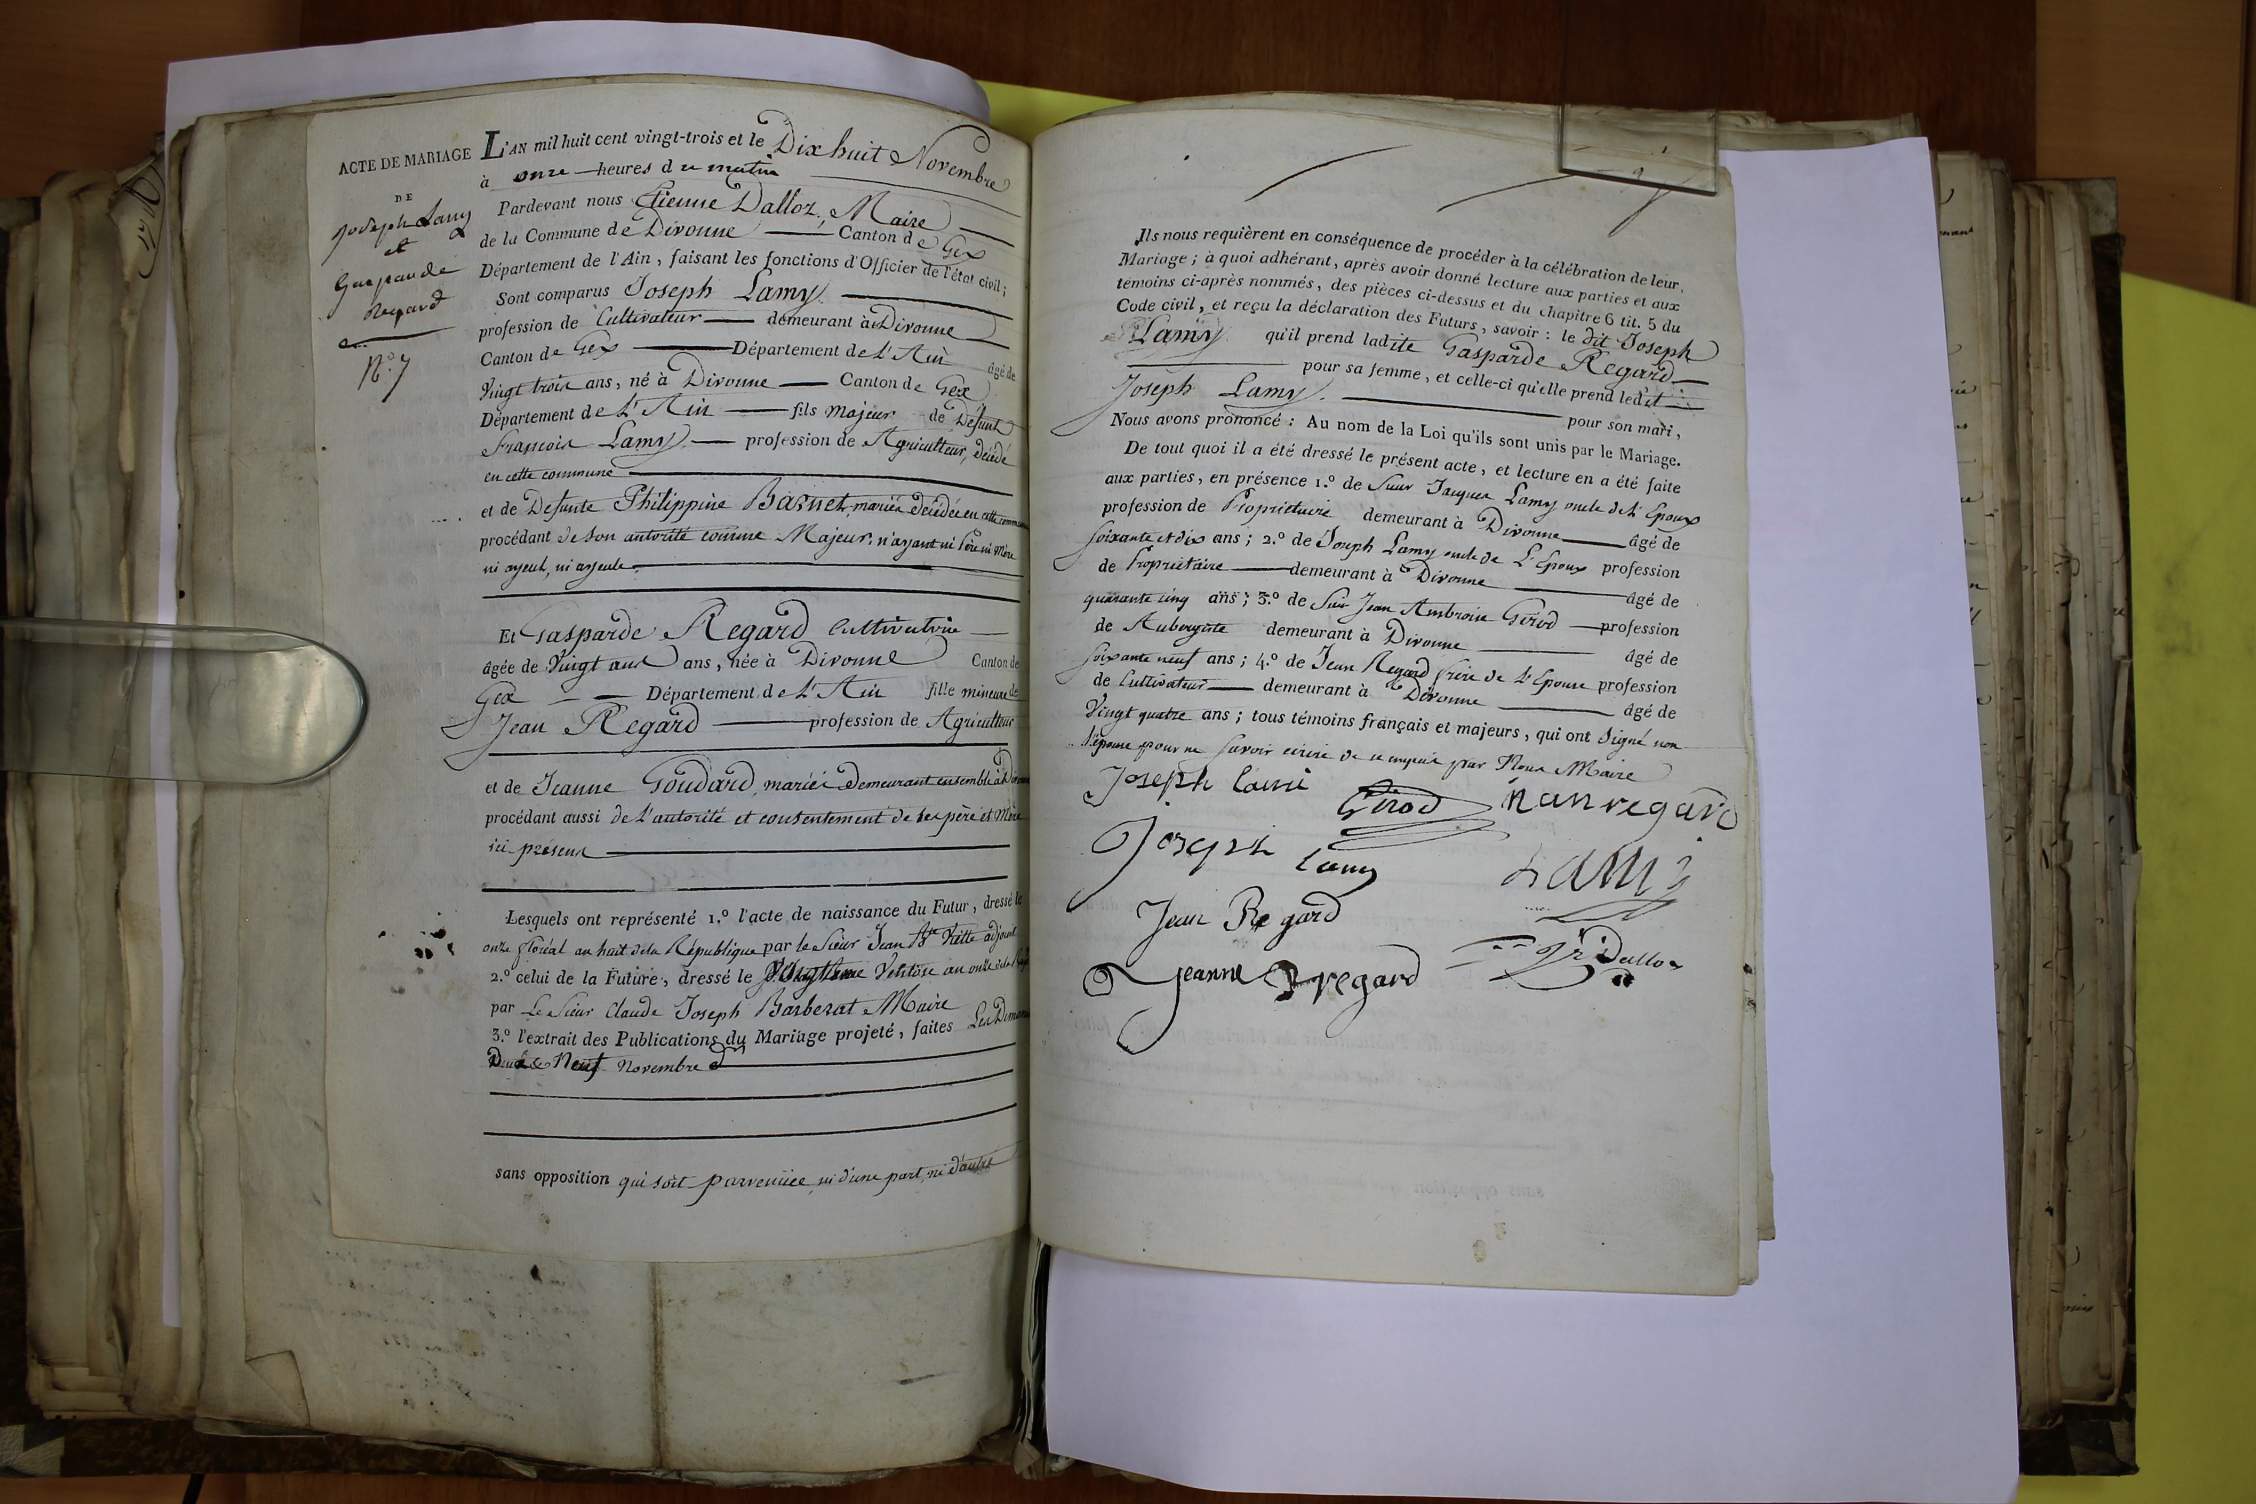 ACTE DE MARIAGE
DE
Joseph Lamy
et
Gasparde
Regard
N.o 7
L'AN mil huit cent vingt-trois et le Dix huit Novembre
à onze heures du matin
Pardevant nous Etienne Dalloz, Maire
de la Commune de Divonne Canton de Gex
Département de l'Ain, faisant les fonctions d'Officier de l'état civil;
Sont comparus Joseph Lamy
profession de Cultivateur demeurant à Divonne
Canton de Gex Département de L'Ain âgé de
Vingt trois ans, né à Divonne Canton de Gex
Département de L'Ain fils Majeur de Défunt
francois Lamy profession de Agriculteur, décédé
en cette commune
et de Defunte Philippine Barnet, mariés décédée en cette commune
procédant de son autorité comme Majeur, n'ayant ni Père ni Mère
ni ayeul, ni ayeule.
Et Gasparde Regard Cultivatrice
âgée de Vingt ans, née à Divonne Canton de
Gex Département de L'Ain fille mineure de
Jean Regard profession de Agriculteur
et de Jeanne Goudard, mariés Demeurant ensemble à Divonne
procédant aussi de L'autorité et consentement de ses père et Mère
ici présens
Lesquels ont représenté 1.o l'acte de naissance du Futur, dressé le
onze floréal an huit de la République par le Sieur Jean Bte adjoint
2.o celui de la Future, dressé le Ventôse an onze de la
par Le Sieur Claude Joseph Barberat Maire
3.o l'extrait des Publications du Mariage projeté, faites Les
Deux & Neuf Novembre
sans opposition qui soit parvenüee, ni d'une part, ni d'autre
Ils nous requièrent en conséquence de procéder à la célébration de leur
Mariage; à quoi adhérant, après avoir donné lecture aux parties et aux
témoins ci-après nommés, des pièces ci-dessus et du chapitre 6 tit. 5 du
Code civil, et reçu la déclaration des Futurs, savoir: le dit Joseph
Lamy qu'il prend ladite Gasparde Regard
pour sa femme, et celle-ci qu'elle prend ledit
Joseph Lamy. pour son mari,
Nous avons prononcé: Au nom de la Loi qu'ils sont unis par le Mariage.
De tout quoi il a été dressé le présent acte, et lecture en a été faite
aux parties, en présence 1.o de Sieur Jacques Lamy oncle de L'Epoux
profession de Propriétaire demeurant à Divonne âgé de
soixante et dix ans; 2.o de Joseph Lamy oncle de L'Epoux profession
de Propriétaire demeurant à Divonne âgé de
quarante cinq ans; 3.o de Sieur Jean Ambroise Girod profession
de Aubergiste demeurant à Divonne âgé de
soixante neuf ans; 4.o de Jean Regard frère de L'Epouse profession
de Cultivateur demeurant à Divonne âgé de
Vingt quatre ans; tous témoins français et majeurs, qui ont signé non
l'épouse pour ne savoir écrire de ce enquise par Nous Maire
Joseph lami
Girod
regard
Joseph lamy
Lamy
Jean Regard
Dalloz
Jeanne regard